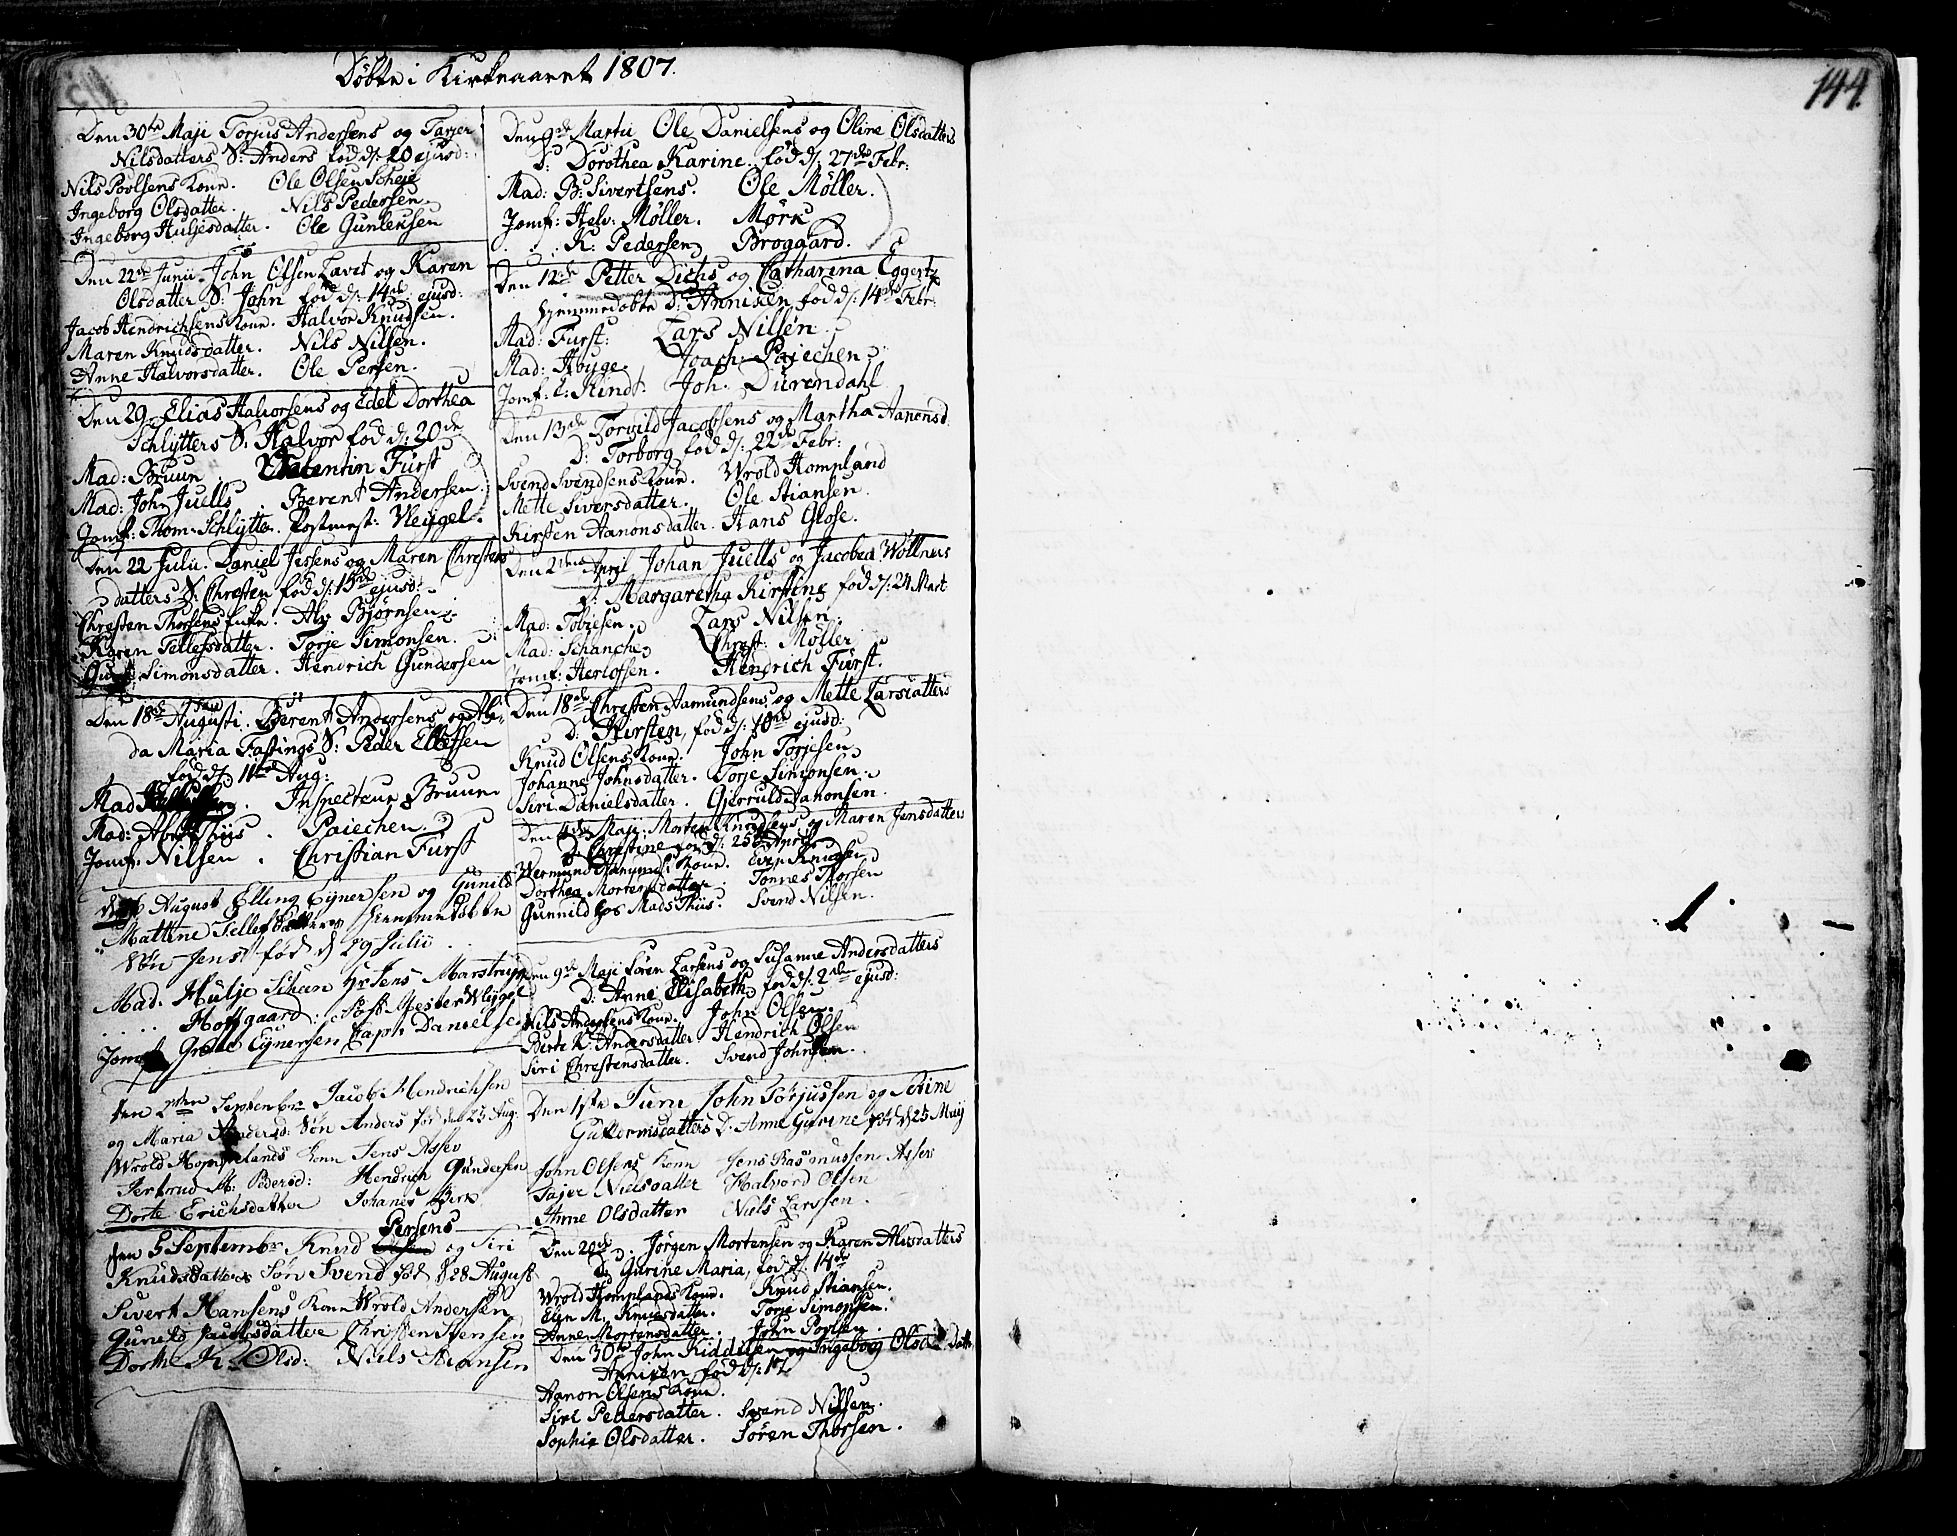 Døbte i Kirkeaaret 1807.
Den 30te Maji Torjus Andersens og Tarjer
Nilsdatters S: Anders fød d/: 20 ejusd:
Nils Poulsens Kone. Ole Olsen Scheie
Ingeborg Olsdatter. Nils Pedersen.
Ingeborg Huljesdatter. Ole Gunleksen
Den 22de Junii John Olsen Lavet og Karen
Olsdatter S: John fød d/: 14de ejusd:
Jacob Hendrichsens Kone. Halvor Knudsen.
Maren Knudsdatter. Nils Nilsen.
Anne Halvorsdatter. Ole Persen.
Den 29 Elias Halvorsens og Edel Dorthea
Schlytters S: Halvor fød d/: 20de
Mad: Bruun. Valentin Fürst
Mad: John Juells. Berent Andersen.
Jomf: Thom: Schlytter. Postmest: Vleügel.
Den 22 Julii. Daniel Jessens og Maren Chrestens
datters S: Chresten fød d/: 15de ejusd:
Chresten Thorsens Enke. Alv Bjørnsen
Karen Tellefsdatter. Torje Simonsen.
Simonsdatter. Hendrich Gundersen
Den 18de Augusti. Berent Andersens og Al:
da Maria Fastings S: Peder Ellefsen
fød d/ 11te Aug:
Mad. Inspecteur Bruun
Mad: Abr: Thiis. Paiechen
Jomf: Nilsen. Christian Fürst
August Elling Eynersen og Gunild
Mattine Tellefsdatters hiemmedøbte
Søn Jens fød d 29 Julii.
Mad. Hulje Marstrup
Hoffgaard: Post Mester Vleügel
Jomf. Grete Eynersen Capt: Danielsen
den 2den Septembr Jacob Hendrichsen
og Maria Andersd: Søn Anders fød den 25 Aug:
Wrold Hommelands Konn Jens Asser
Jertrud M: Pedersd: Hendrich Gundersen
Dorte Erichsdatter Johanes Birk
Persens
den 5 Septembr Knud og Siri
Knudsdatters Søn Svend fød d 28 August
Sivert Hansens Konn Wrold Andersen
Gunild Jacobsdatter Christen Jensen
Dorthe K: Olsd: Niels Stiansen
Den 9de Martii Ole Danielsens og Oline Olsdatters
D: Dorothea Karine. fød d/: 27de Febr:
Mad: B: Sivertsens. Ole Møller.
Jomf: Helv: Møller. Mørk
K: Pedersen Broggard.
Den 12de Petter Dichs og Catharina Eggertz
hjemmedøbte D: Anniken fød d/: 14de Febr:
Mad: Fürst: Lars Nilsen.
Mad: Houge. Joach: Paiechen
Jomf: C: Kindt. Joh. Durendahl
Den 13de Torvild Jacobsens og Martha Aanonsd
D: Torborg fød d/: 22de Febr:
Svend Svendsens Kone. Wrold Hompland
Mette Siversdatter. Ole Stiansen.
Kirsten Aanonsdatter. Hans Glose.
Den 2den April Johan Juells og Jacobea Wöllnus
D: Margaretha Kirstine fød d/: 24 Mart
Mad: Tobiesen. Lars Nilsen.
Mad: Schanche. Christ: Møller
Jomf: Herlofsen. Hendrich Fürst.
Den 18de Chresten Aamundsens og Mette Larsdatters
D: Kirsten, fød d/: 10de ejusd:
Knud Olsens Kone. John Torjesen
Johanne Johnsdatter. Torje Simonsen.
Siri Danielsdatter. Gjeruld Aanonsen.
Den Maji: Morten Knudsens og Maren Jensdatters
D: Christine fød d/: 25de April
Wermund Aanunds: Kone. Even Knudsen
Dorthea Mortensdatter. Tønnes Thorsen
Gunnild hos Mads Thiis. Svend Nilsen.
Den 9de Maji Søren Larsens og Susanne Andersdatters
D: Anne Elisabeth fød d/: 2den ejusd:
Nils Andersens Kone. John Olsen.
Berte K: Andersdatter Hendrich Olsen
Siri Chrestensdatter. Svend Johnsen.
Den 1ste Juni John Torjussen og Sørine
Guttormsdatters D: Anne Gurine fød d 25 Maij
John Olsens Konn Jens Rasmussen Asser
Tajer Nielsdatter Halvord Olsen
Anne Olsdatter Niels Larssen.
Den 20de Jørgen Mortensen og Karen Alvsdatters
D: Gurine Maria, fød d/. 14de
Wrold Homplands Kone. Knud Stiansen.
Elen M. Knudsdatter. Torje Simonsen.
Anne Mortensdatter. John Povlsen.
Den 30te John Kiddelsen og Ingeborg Olsdatters Datt:
Anniken, fød d/: 17
Aanon Olsens Kone.
Siri Pedersdatter. Svend Nilsen.
Sophie Olsdatter. Søren Thorsen.
144.